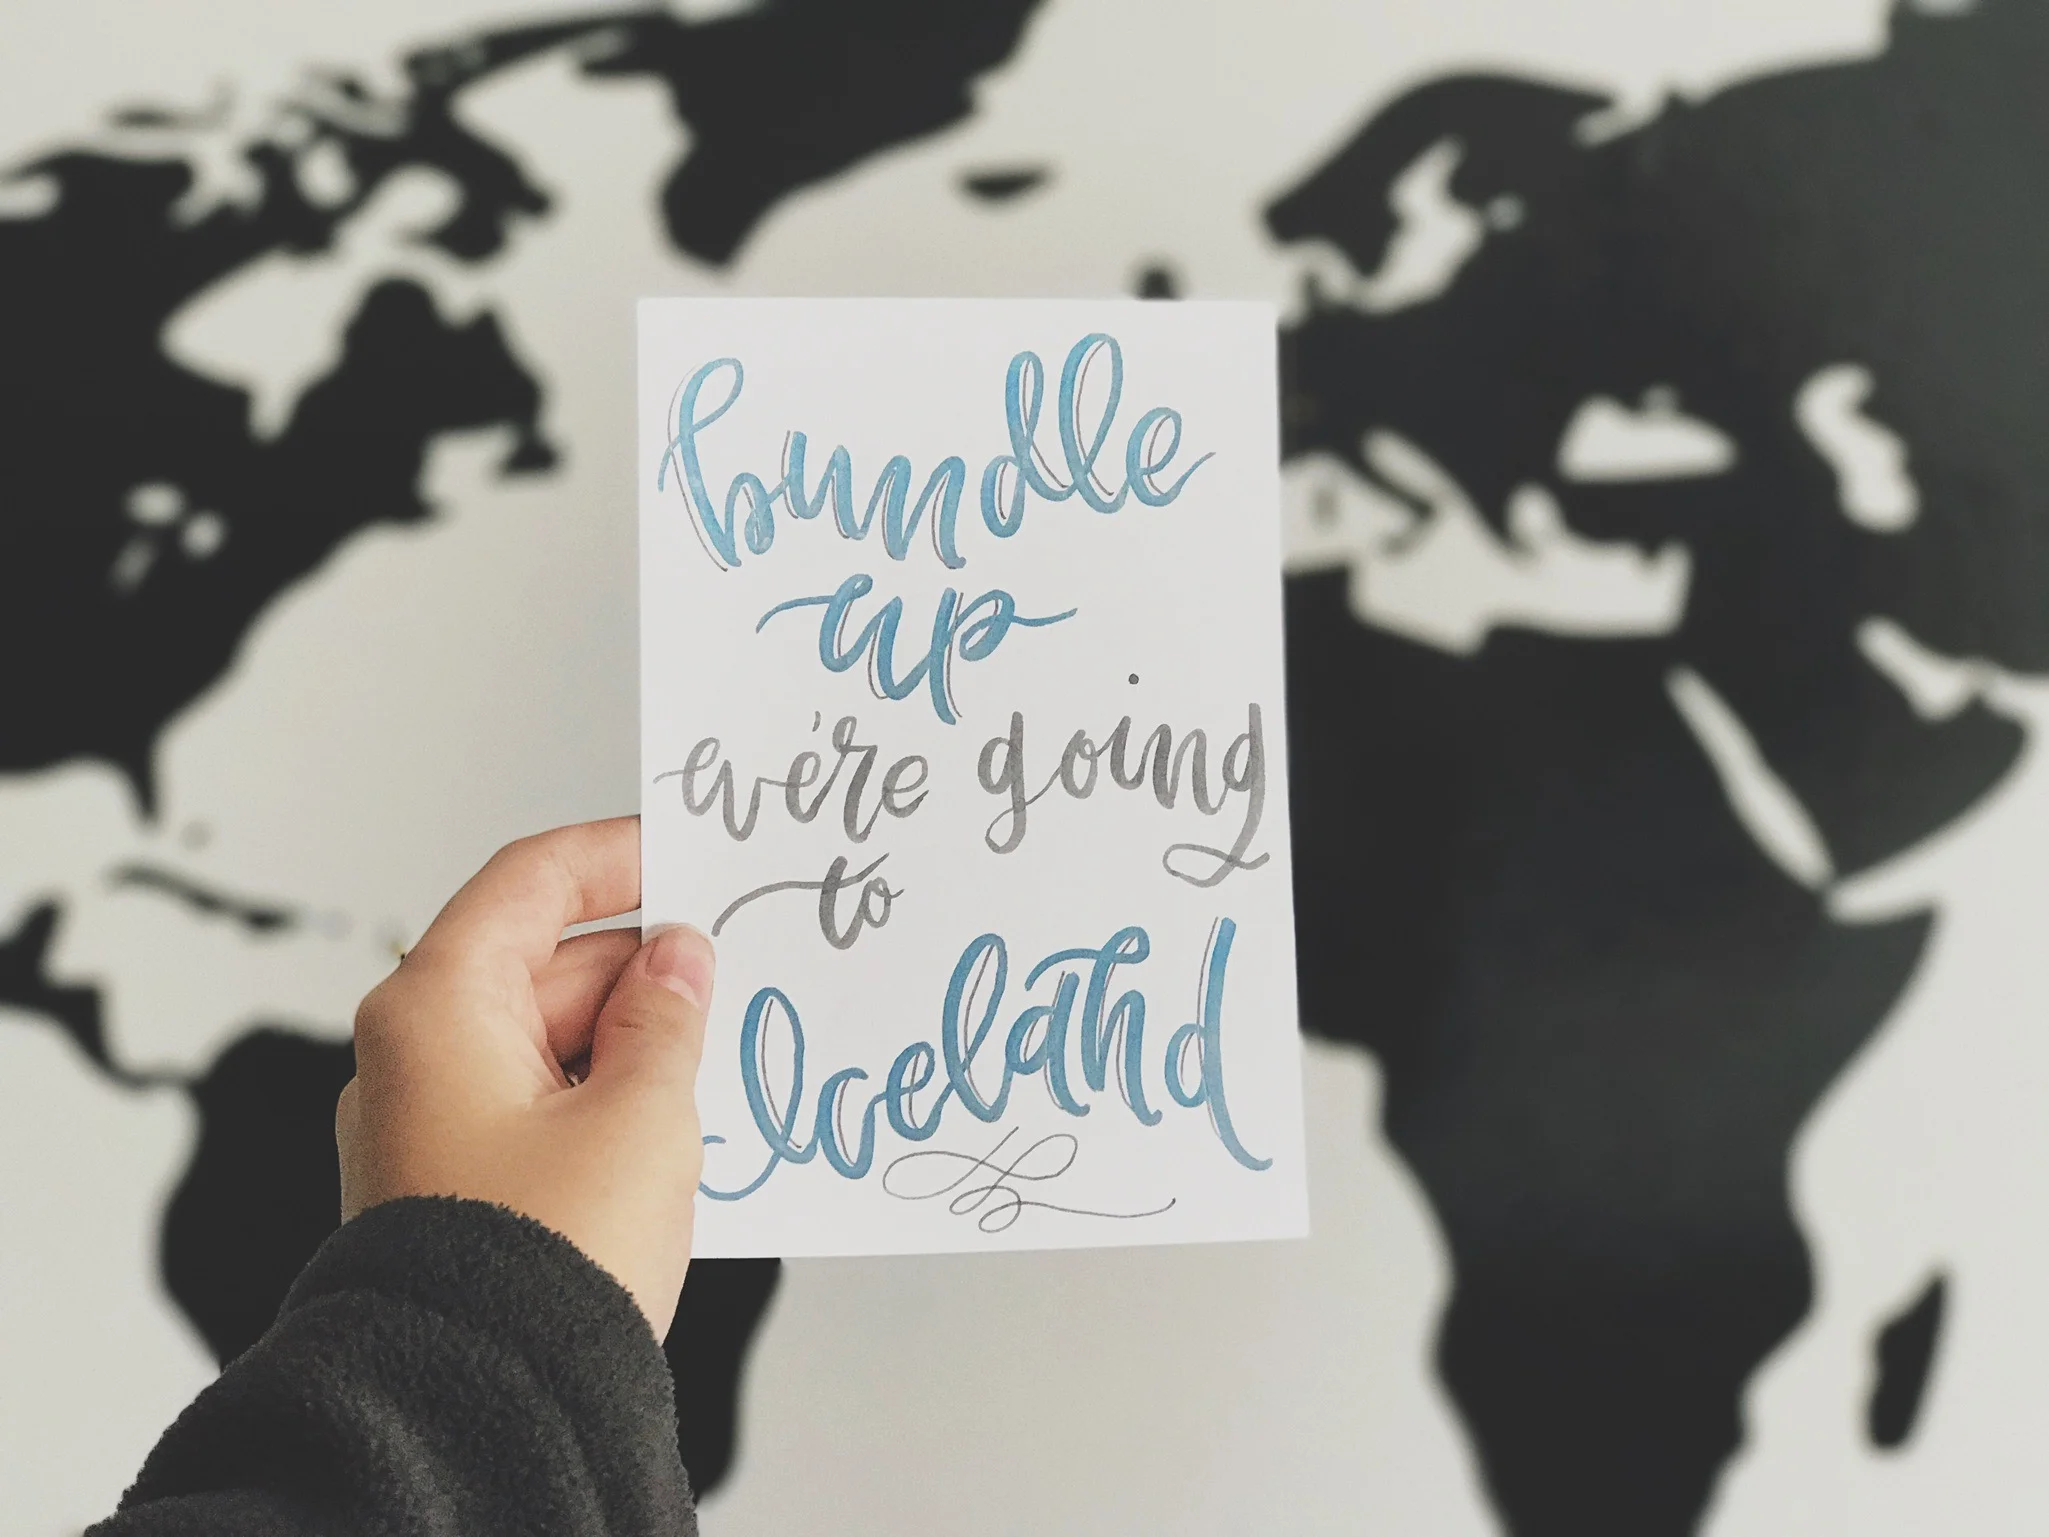 bundle
up
we're going
to
Iceland